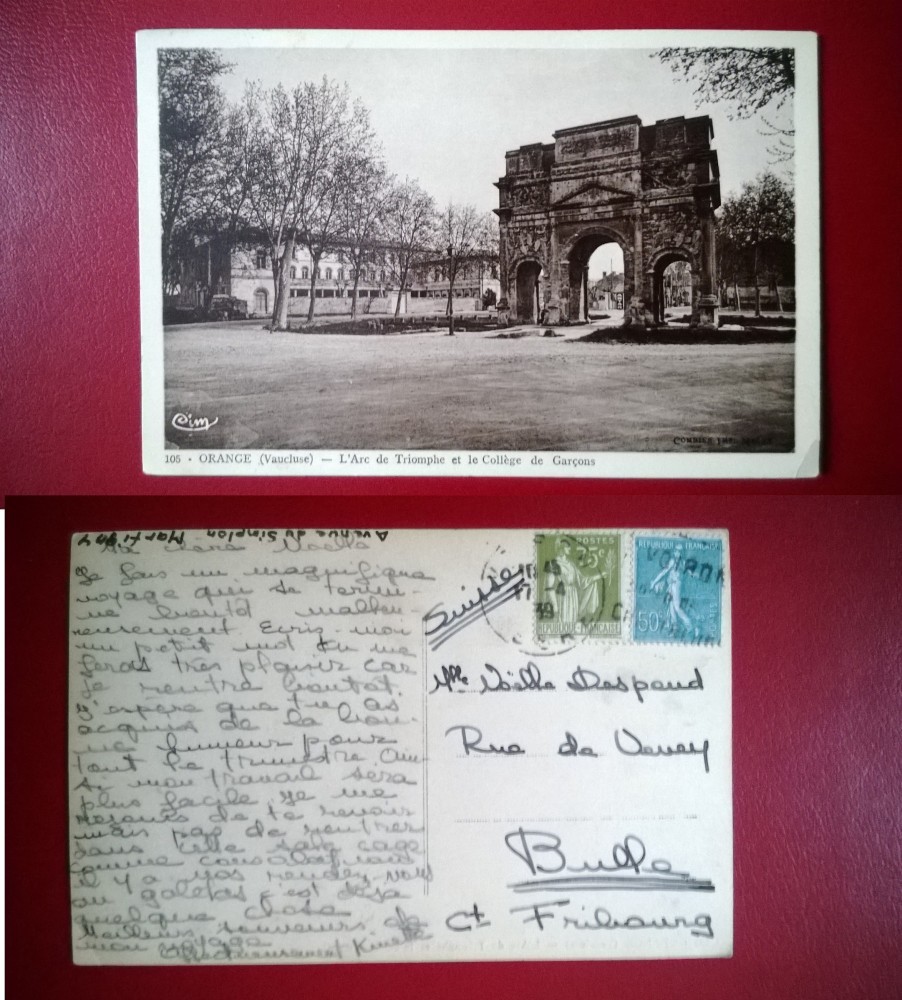 Cim
COMBIER IMP. MACON
105 - ORANGE (Vaucluse) — L'Arc de Triomphe et le Collège de Garçons
Avenue du Simplon Martigny
Ma chère Noëlle
Je fais un magnifique
voyage qui se termi-
ne bientôt malheu-
reusement. Ecris-moi
un petit mot tu me
feras très plaisir car
je rentre bientôt.
J'espère que tu as
acquis de la bon-
ne humeur pour
tout le trimestre ain-
si mon travail sera
plus facile. Je me
réjouis de te revoir
mais pas de rentrer
dans cette sale cage
comme consolation
il y a nos rendez-vous
au galetas c'est déjà
quelque chose
Meilleurs souvenirs de
mon voyage
Affectueusement
Suisse
POSTES
25c
RÉPUBLIQUE FRANÇAISE
RÉPUBLIQUE FRANÇAISE
50
VOIRON
39
Mlle Noëlle Despond
Rue de Vevey
Bulle
Ct Fribourg